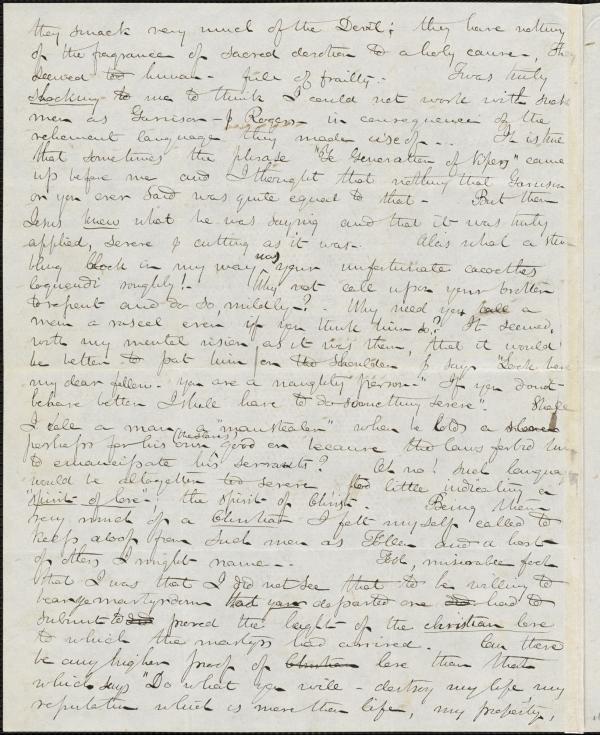 they smack very much of the Devil; they have nothing
of the fragrance of sacred devotion to a holy cause, they
seemed too human - full of frailty. 'Twas truly
shocking to me to think I could not work with such
men as Garrison & Rogers in consequence of the
vehement language they made use of - . . It is true
that sometimes the phrase "Ye Generation of Vipers" came
up before me and I thought that nothing that Garrison
or you ever said was quite equal to that - But then
Jesus knew what he was saying and that it was truly
applied, severe & cutting as it was. Alas what a stum
bling block in my way was your unfortunate cacoethes
loquendi roughly! Why not call upon your brethren
to repent and do so, mildly? - Why need you call a
man a rascal even if you think him so? It seemed,
with my mental vision as it was then, that it would
be better to pat him on the shoulder & say "Look here
my dear fellow - you are a naughty person -" If you don't
behave better I shall have to do something severe". Shall
I call a man a "manstealer" when he holds a slave
perhaps for his (the slave's) own good or because the laws forbid him
to emancipate his servants? Oh no! such language
would be altogether too severe too little indicating a
"Spirit of love" - the spirit of Christ. Being then
very much of a Christian I felt myself called to
keep aloof from such men as and a host
of others I might name - . Fool, miserable fool
that I was that I did not see that to be willing to
bear martyrdom departed one had to
submit to proved the height of the christian love
to which the martyrs had arrived. Can there
be any higher proof of Christian love than that
which says "Do what you will - destroy my life my
reputation which is more than life, my property,